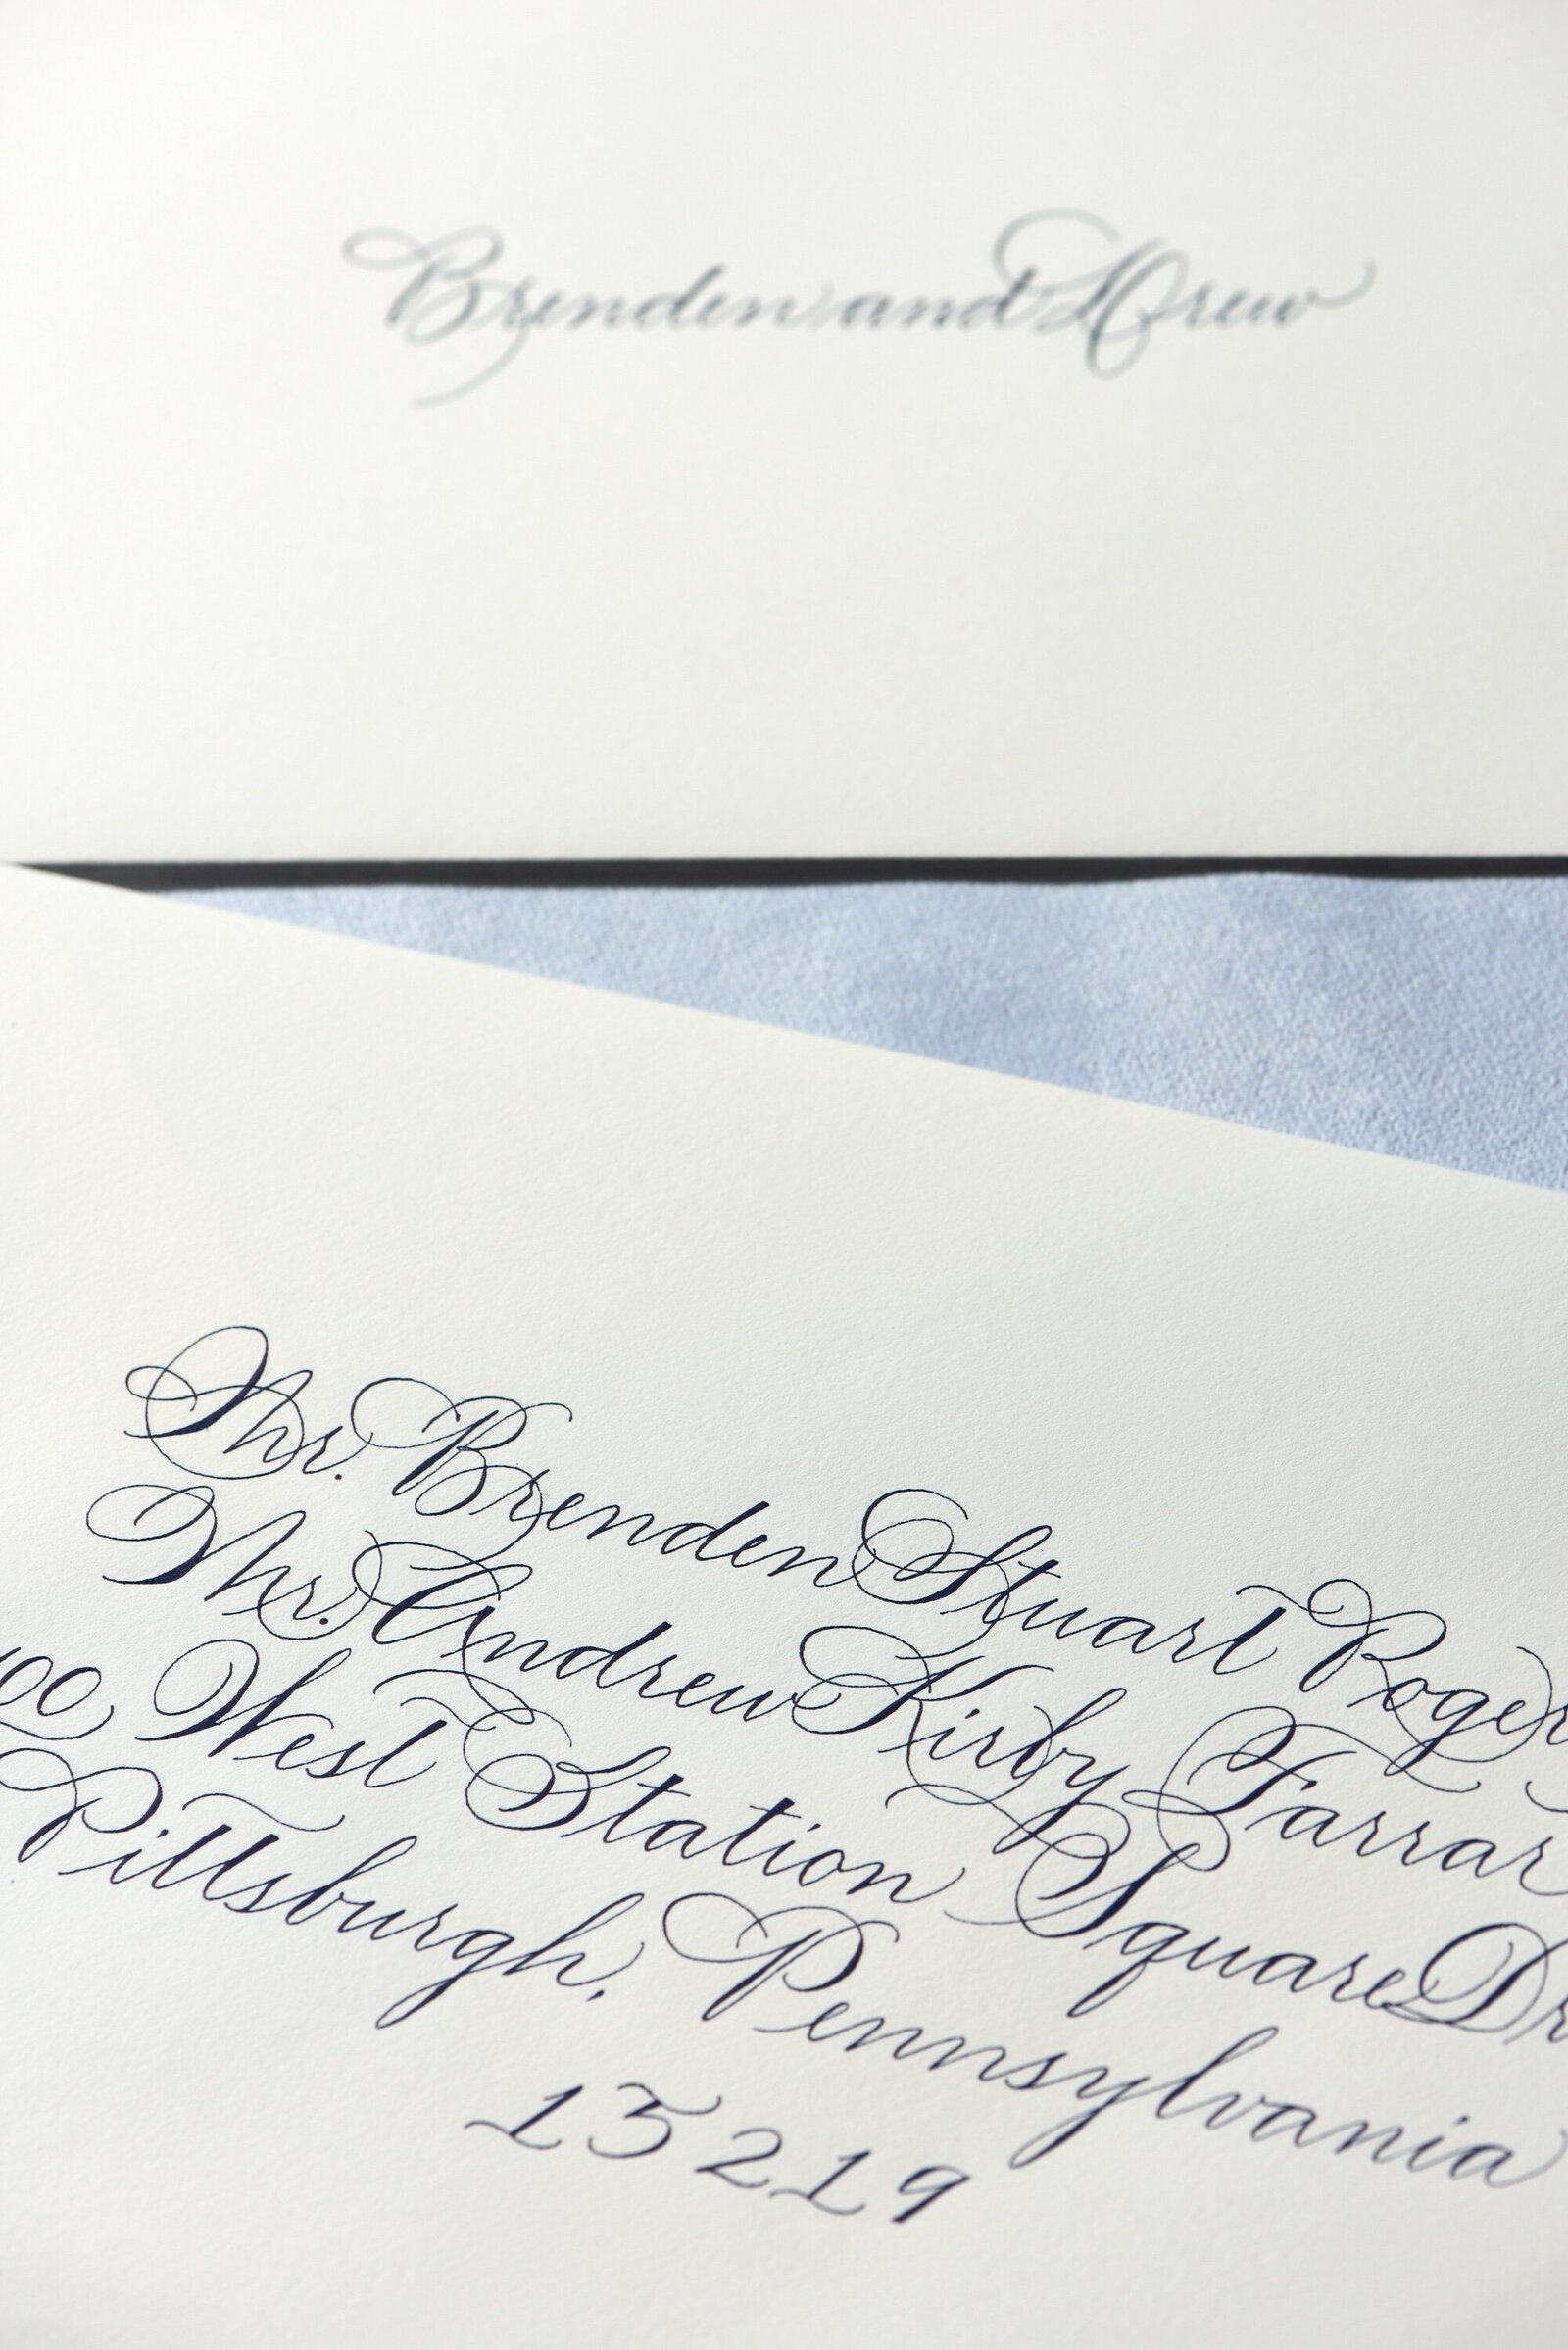 Brenden and Drew
Mr. Brenden Stuart Roger
Mr. Andrew Kirby Farrar
00 West Station Square Dr
Pittsburgh, Pennsylvania
15219